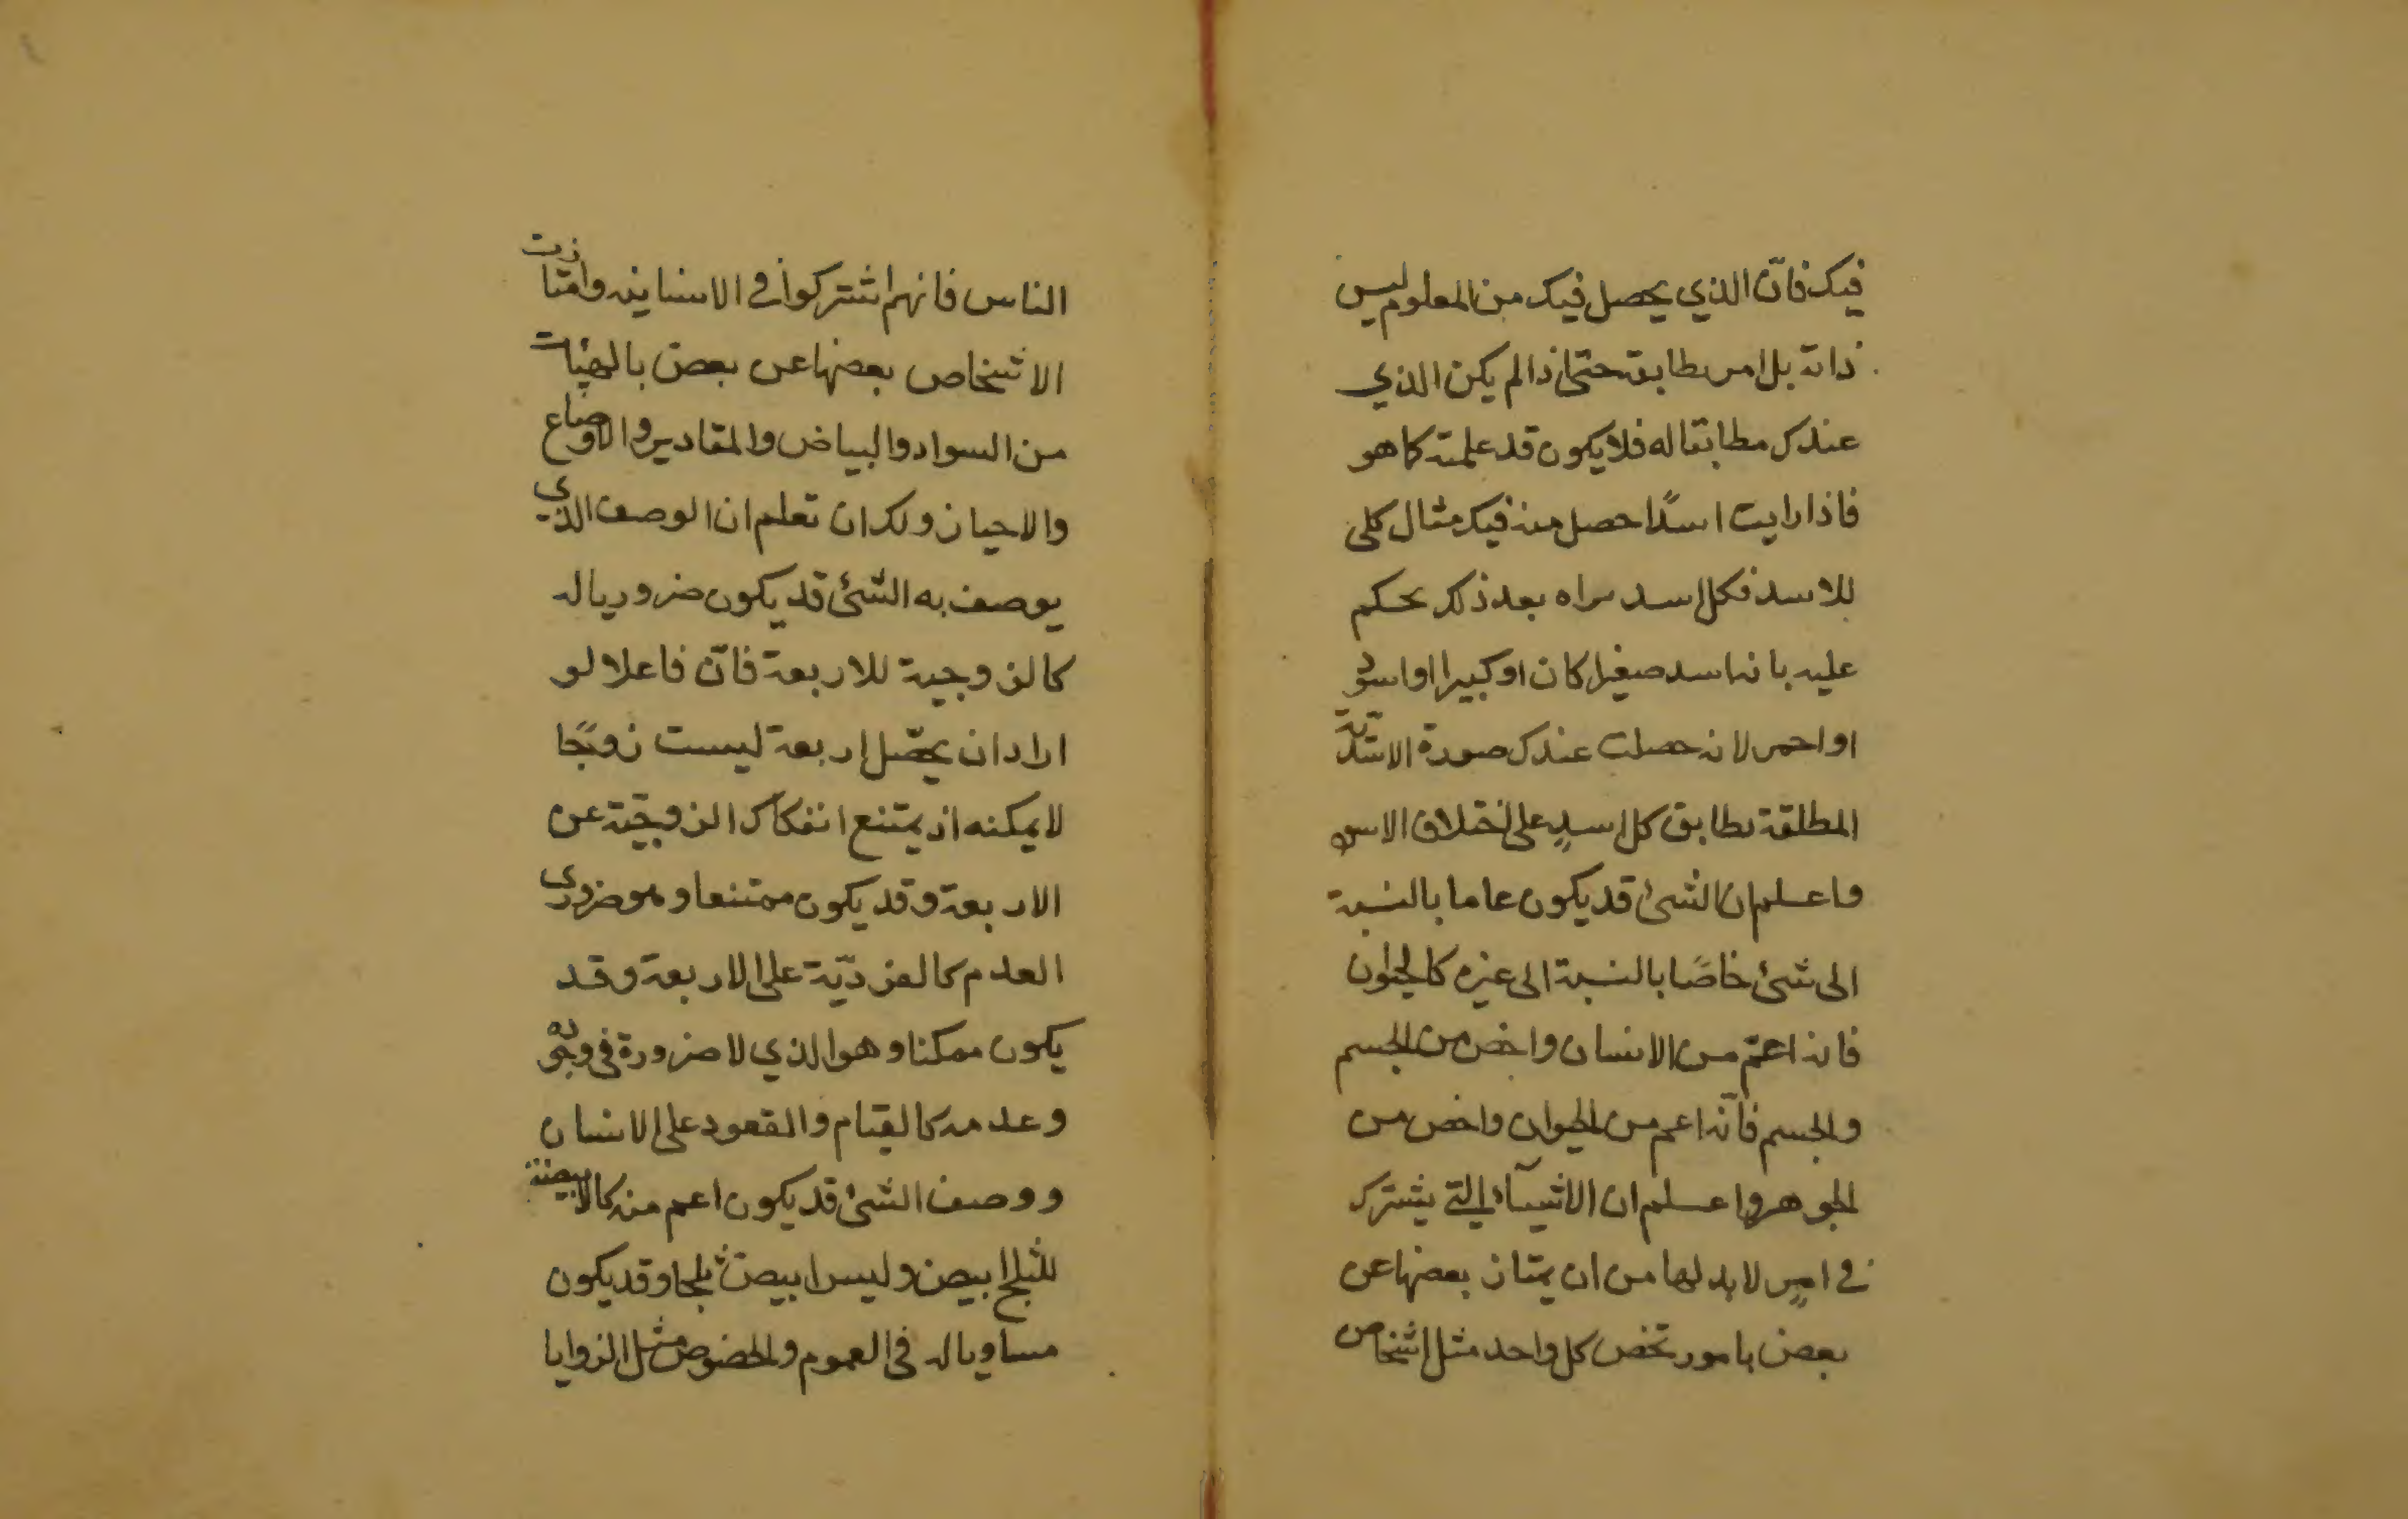 فيك فانّ الذي يحصل فيك من المعلوم ليس
ذاته بل امر يطابقه حتى اذا لم يكن الذي
عندك مطابقا له فلا يكون قد علمته كما هو
فاذا رايت اسدًا حصل منه فيك مثال كلى
للاسد فكل اسد تراه بعد ذلك تحكم
عليه بانه اسد صغيرا كان او كبيرا او اسود
او احمر لانه حصلت عندك صورة الاسديّة
المطلقة تطابق كل اسدٍ على اختلاف الاسود
واعلم ان الشئ قد يكون عاما بالنسبة
الى شئ خاصًا بالنسبة الى غيره كالحيوان
فانه اعمّ من الانسان واخص من الجسم
والجسم فانّه اعم من الحيوان واخص من
الجوهر واعلم ان الاشيآء التي يشترك
في امرٍ لا بد لها من ان يمتاز بعضها عن
بعض بامور تخص كل واحد مثل اشخاص
الناس فانهم اشتركوا في الانسانية وامتازت
الاشخاص بعضها عن بعض بالهيئات
من السواد والبياض والمقادير والاوضاع
والاحياز ولك ان تعلم ان الوصف الذي
يوصف به الشئ قد يكون ضروريا له
كالزوجية للاربعة فانّ فاعلا لو
اراد ان يحصّل اربعة ليست زوجًا
لا يمكنه اذ يمتنع انفكاك الزوجيّة عن
الاربعة وقد يكون ممتنعا وهو ضرورى
العدم كالفرديّة على الاربعة وقد
يكون ممكنا وهو الذي لا ضرورة في وجوده
وعدمه كالقيام والقعود على الانسان
ووصف الشئ قد يكون اعم منه كالابيضية
للثلج ابيض وليس ابيض ثلجا وقد يكون
مساويا له في العموم والخصوص مثل الزوايا